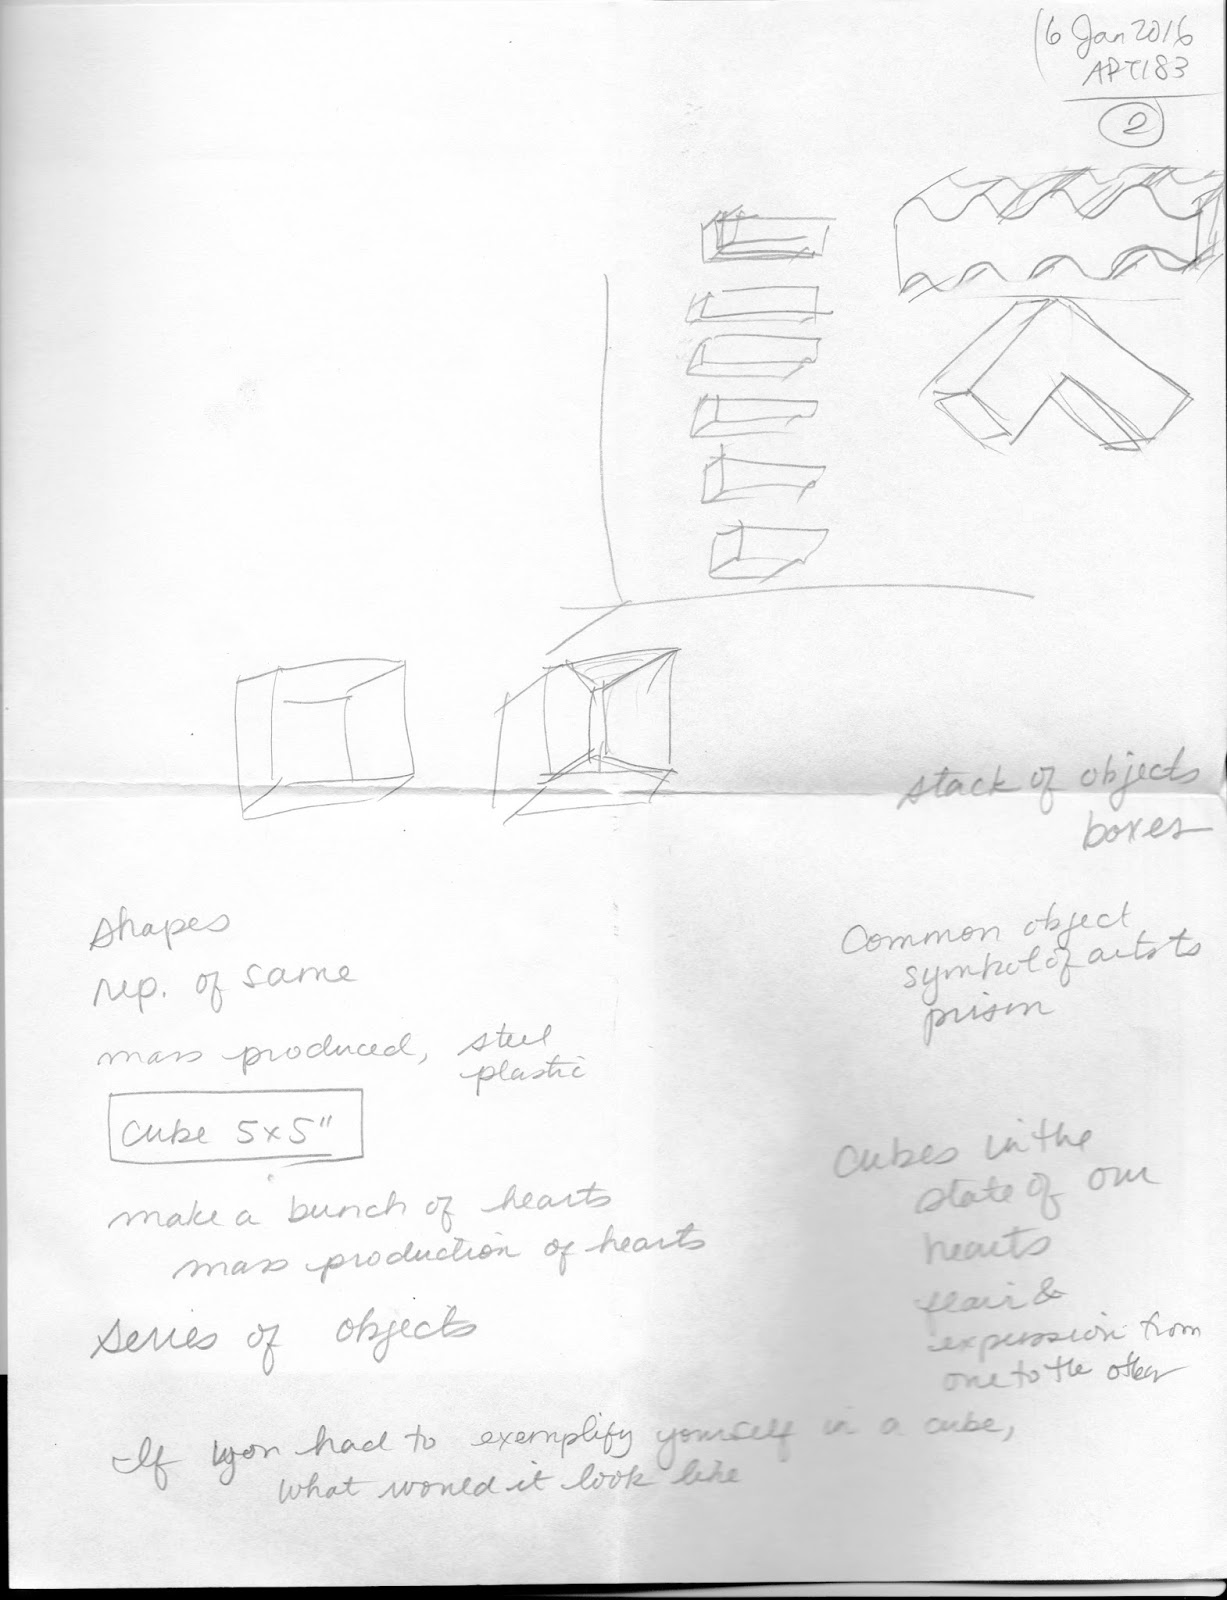 6 Jan 2016
ART183
2
stack of objects
boxes
shapes
rep. of same
mass produced, steel
plastic
Cube 5x5"
make a bunch of hearts
mass production of hearts
series of objects
Common object
symbol of artists
prison
Cubes in the
state of our
hearts
flair &
expression from
one to the other
If you had to exemplify yourself in a cube,
what would it look like